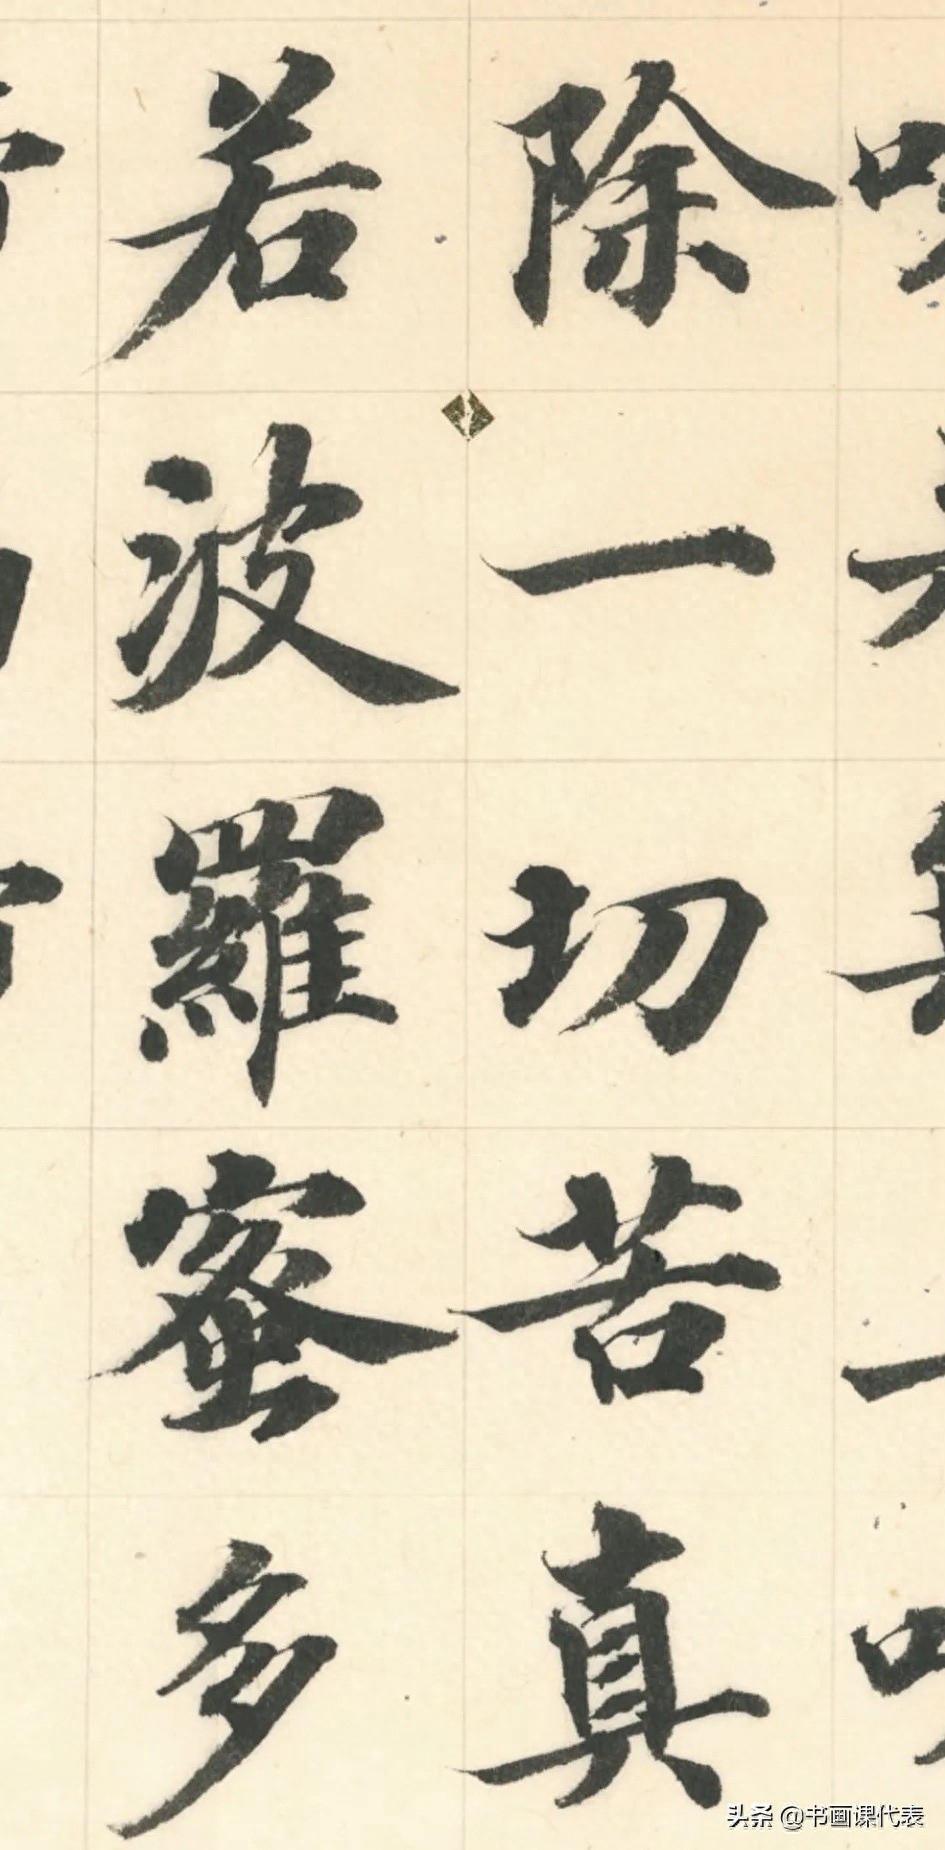 除一切苦真
若波羅蜜多
头条 @书画课代表